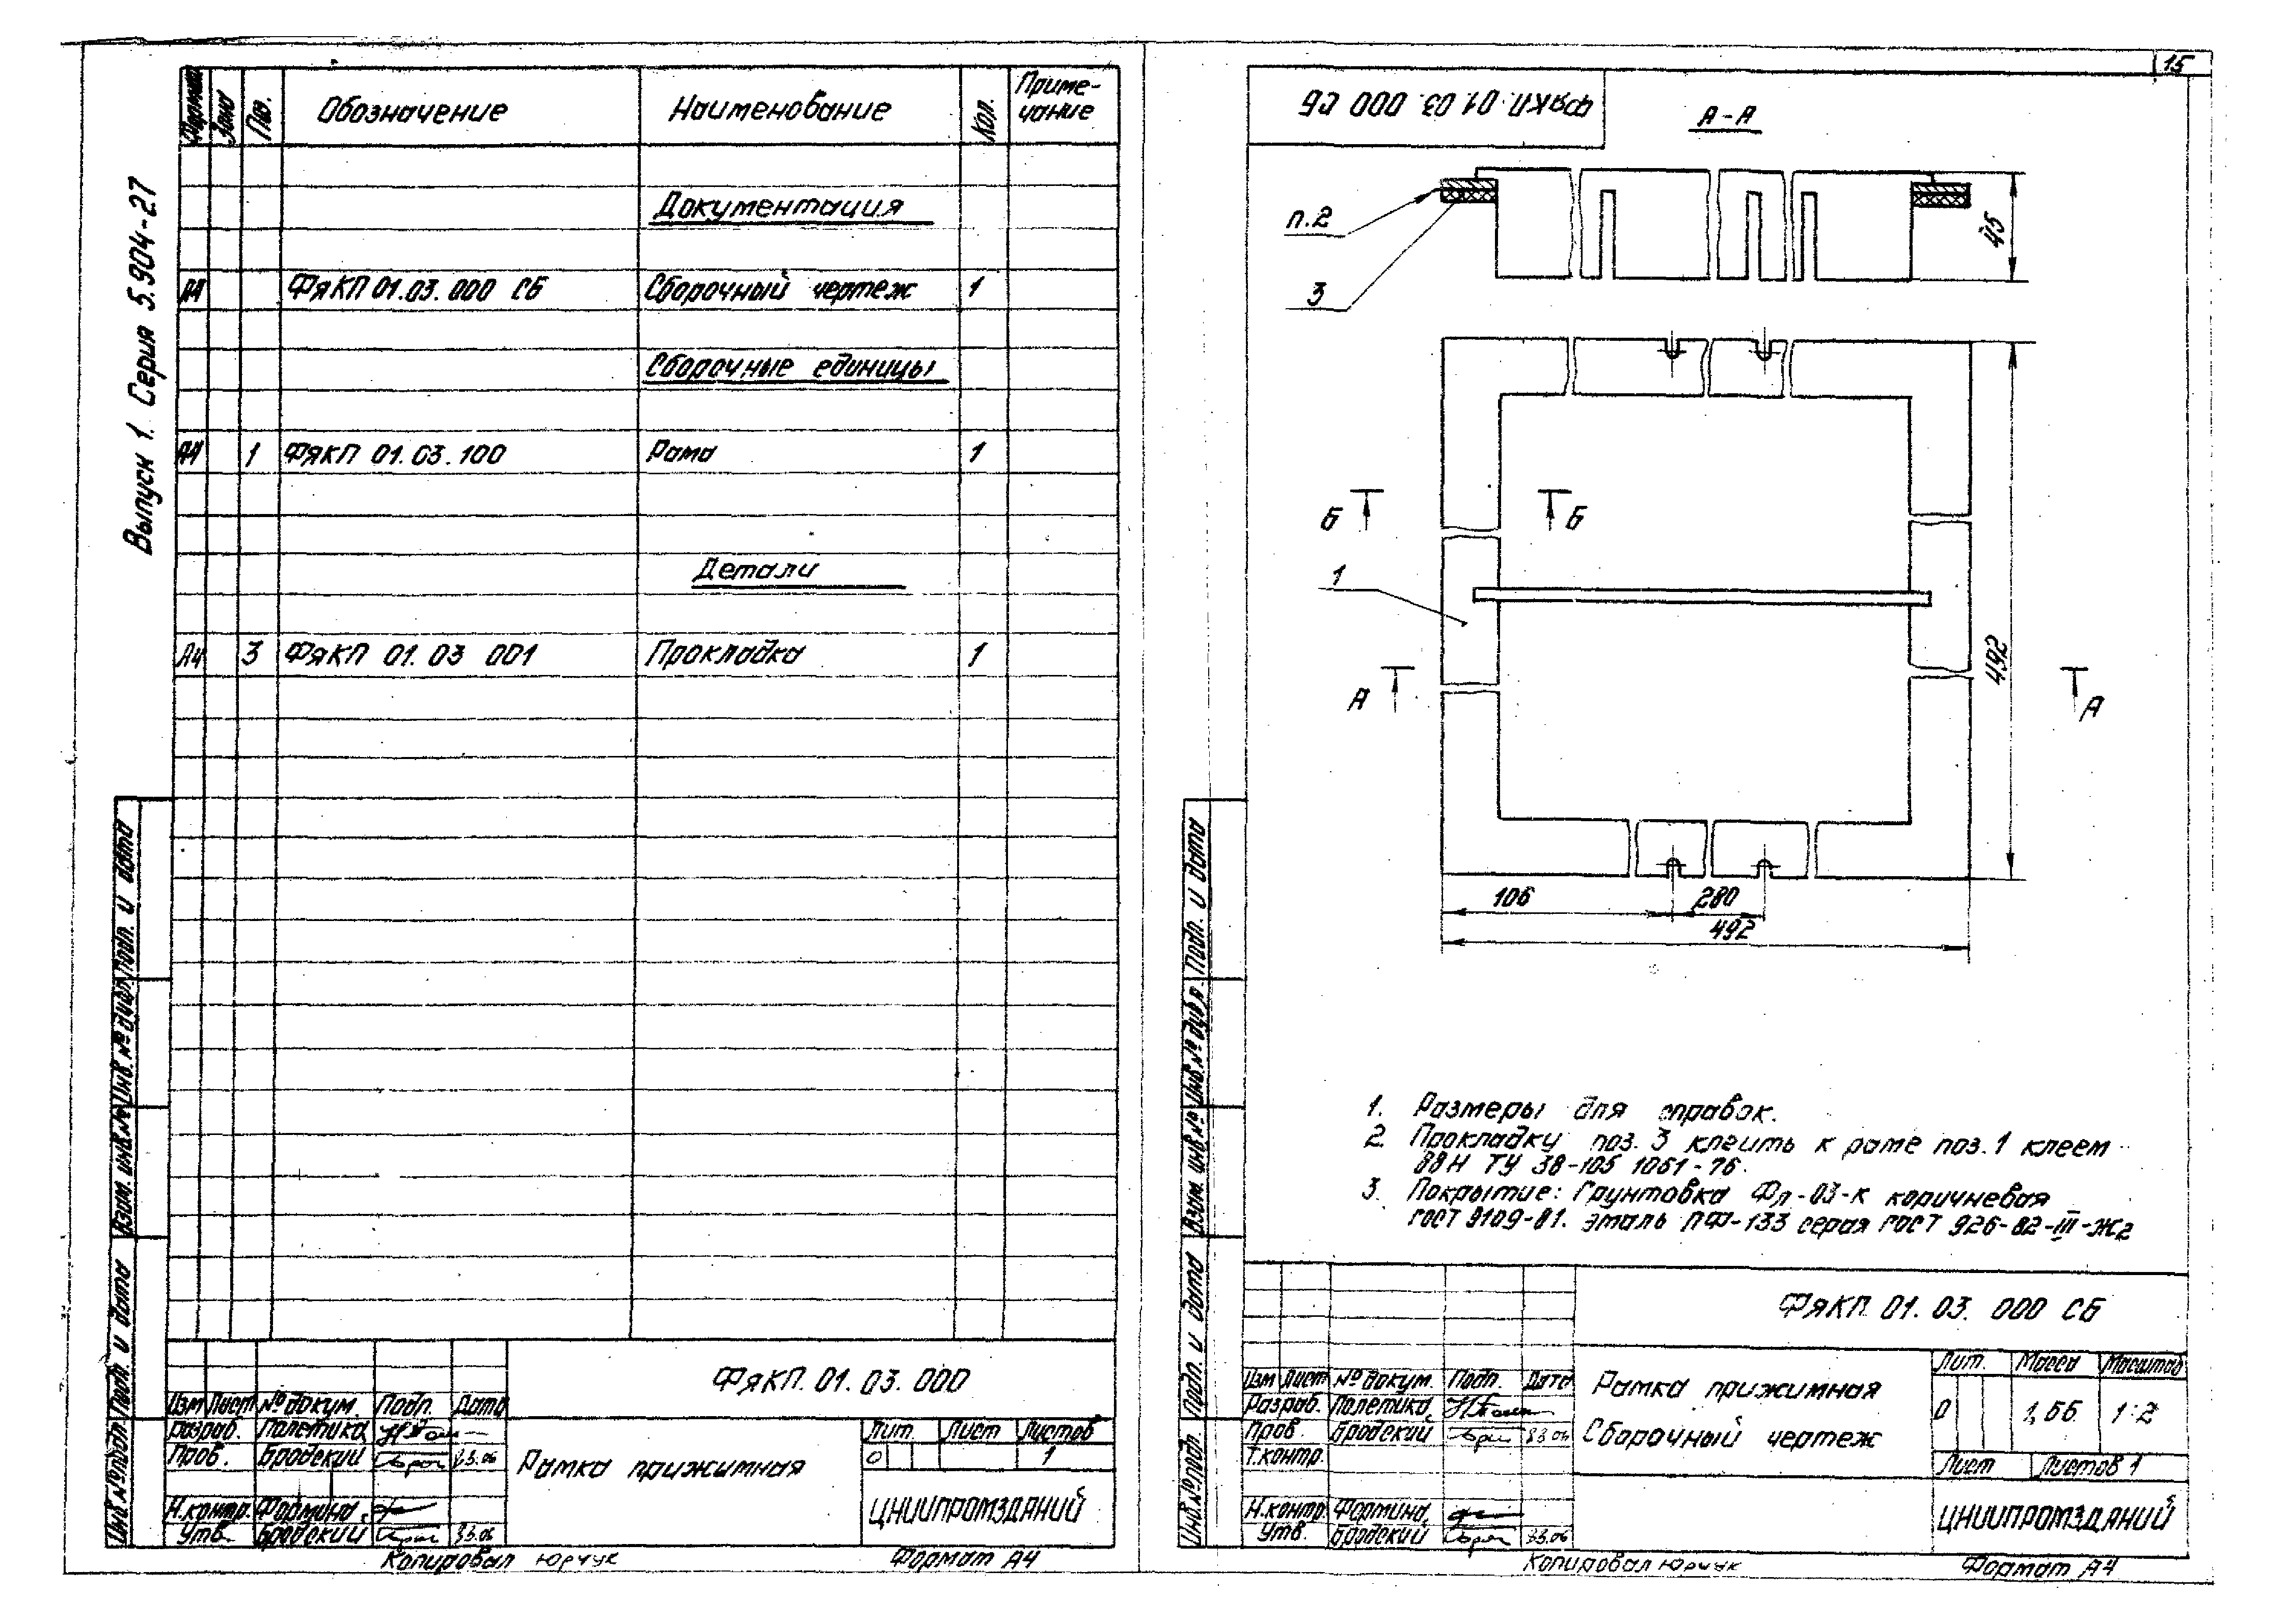 Выпуск 1. Серия 5.904-27
Формат Зона Поз. Обозначение Наименование Кол. Приме-
чание
Документация
А4 ФяКП 01.03.000 СБ Сборочный чертеж 1
Сборочные единицы
А4 1 ФЯКП 01.03.100 Рама 1
Детали
А4 3 ФяКП 01.03 001 Прокладка 1
Инв.№подл. Подп. и дата Взам. инв.№ Инв.№дубл. Подп. и дата
ФяКП.01.03.000
Изм Лист № докум. Подп. Дата
Разраб. Полетика
Пров. Бродский 83.06
Н.контр. Формина
Утв. Бродский 83.06
Рамка прижимная
Лит. Лист Листов
О 1
ЦНИИПРОМЗДАНИЙ
Копировал Юрчук Формат А4
15
ФяКП.01.03.000 СБ
А-А
п.2
3
45
Б Б
1
А А
492
106 280
492
1. Размеры для справок.
2 Прокладку поз.3 клеить к раме поз.1 клеем
88Н ТУ 38-105 1061-76.
3. Покрытие: Грунтовка Фл-03-к коричневая
ГОСТ 9109-81. эмаль ПФ-133 серая ГОСТ 926-82-III-Ж2
Инв.№подл. Подп. и дата Взам. инв№ Инв.№дубл. Подп. и дата
ФЯКП.01.03.000 СБ
Изм Лист № докум. Подп. Дата
Разраб. Полетика
Пров. Бродский 83.06
Т.контр.
Н.контр. Формина
Утв. Бродский 83.06
Рамка прижимная
Сборочный чертеж
Лит. Масса Масштаб
О 1,66 1:2
Лист Листов 1
ЦНИИПРОМЗДАНИЙ
Копировал Юрчук Формат А4